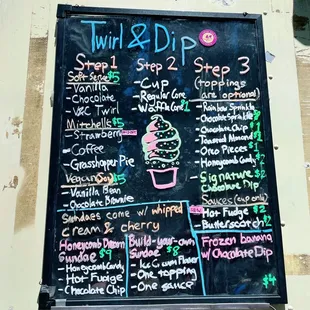 Twirl & Dip
Step 1
Soft Serve $5
- Vanilla
- Chocolate
- V&C Twirl
Mitchells $5
- Strawberry
- Coffee
- Grasshopper Pie
Vegan $5
- Vanilla Bean
- Chocolate Brownie
Step 2
- Cup
- Regular Cone
- Waffle Cone $1
Step 3
(toppings
are optional)
- Rainbow Sprinkle
- Chocolate Sprinkle
- Chocolate Chip
- Toasted Almond
- Oreo Pieces $1
- Honeycomb Candy
- Signature
Chocolate Dip
Sauces (cup only)
- Hot Fudge $2
- Butterscotch
Sundaes come w/ whipped
cream & cherry
Honeycomb Dream
Sundae $9
- Honeycomb Candy
- Hot Fudge
- Chocolate Chip
Build-your-own
Sundae $8
- Ice Cream Flavor
- One topping
- One sauce
Frozen banana
w/ Chocolate Dip
$4